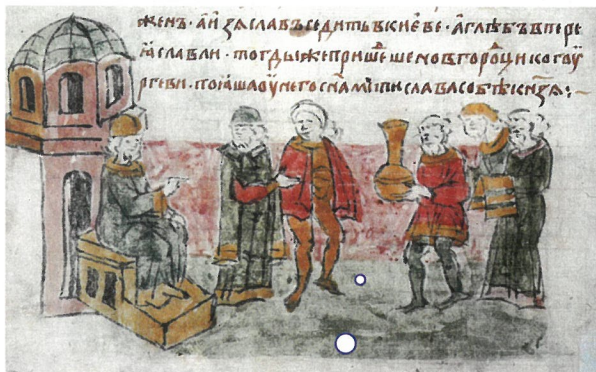 женъ · а изѧславъ седить в киеве · а глѣбъ в пере
ѧславли · тогды же пришеше новгороци ко гоу
ргеви · поѧша оу него сн҃а мстислава собѣ кн҃зѧ :~